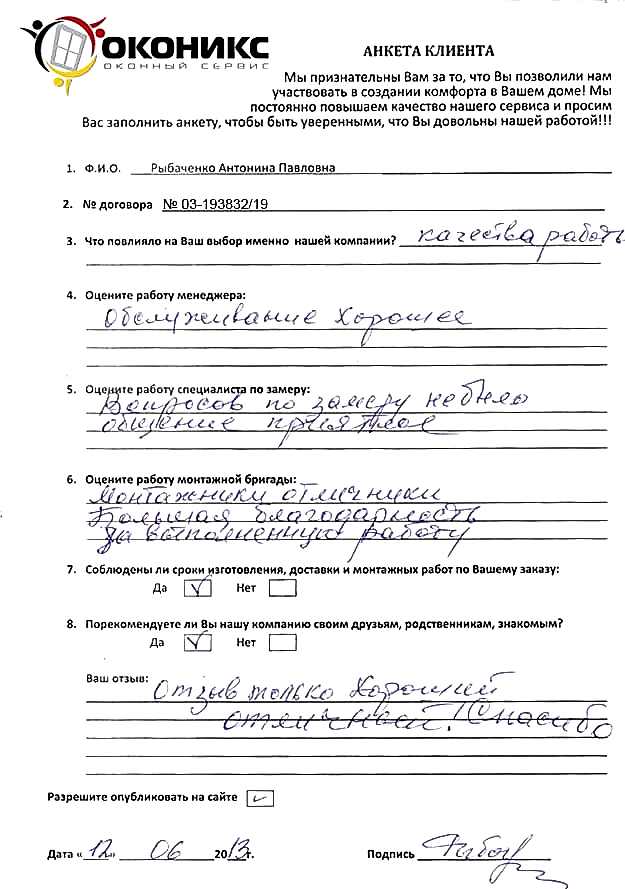 ОКОНИКС
ОКОННЫЙ СЕРВИС
АНКЕТА КЛИЕНТА
Мы признательны Вам за то, что Вы позволили нам
участвовать в создании комфорта в Вашем доме! Мы
постоянно повышаем качество нашего сервиса и просим
Вас заполнить анкету, чтобы быть уверенными, что Вы довольны нашей работой!!!
1. Ф.И.О. Рыбаченко Антонина Павловна
2. № договора № 03-193832/19
3. Что повлияло на Ваш выбор именно нашей компании? качества работы
4. Оцените работу менеджера:
Обслуживание Хорошее
5. Оцените работу специалиста по замеру:
Вопросов по замеру небыло
общение приятное
6. Оцените работу монтажной бригады:
Монтажники отличники
Большая благодарность
за выполненную работу
7. Соблюдены ли сроки изготовления, доставки и монтажных работ по Вашему заказу:
Да Нет
8. Порекомендуете ли Вы нашу компанию своим друзьям, родственникам, знакомым?
Да Нет
Ваш отзыв: Отзыв только Хороший
отличный! Спасибо
Разрешите опубликовать на сайте
Дата «12» 06 2013г. Подпись